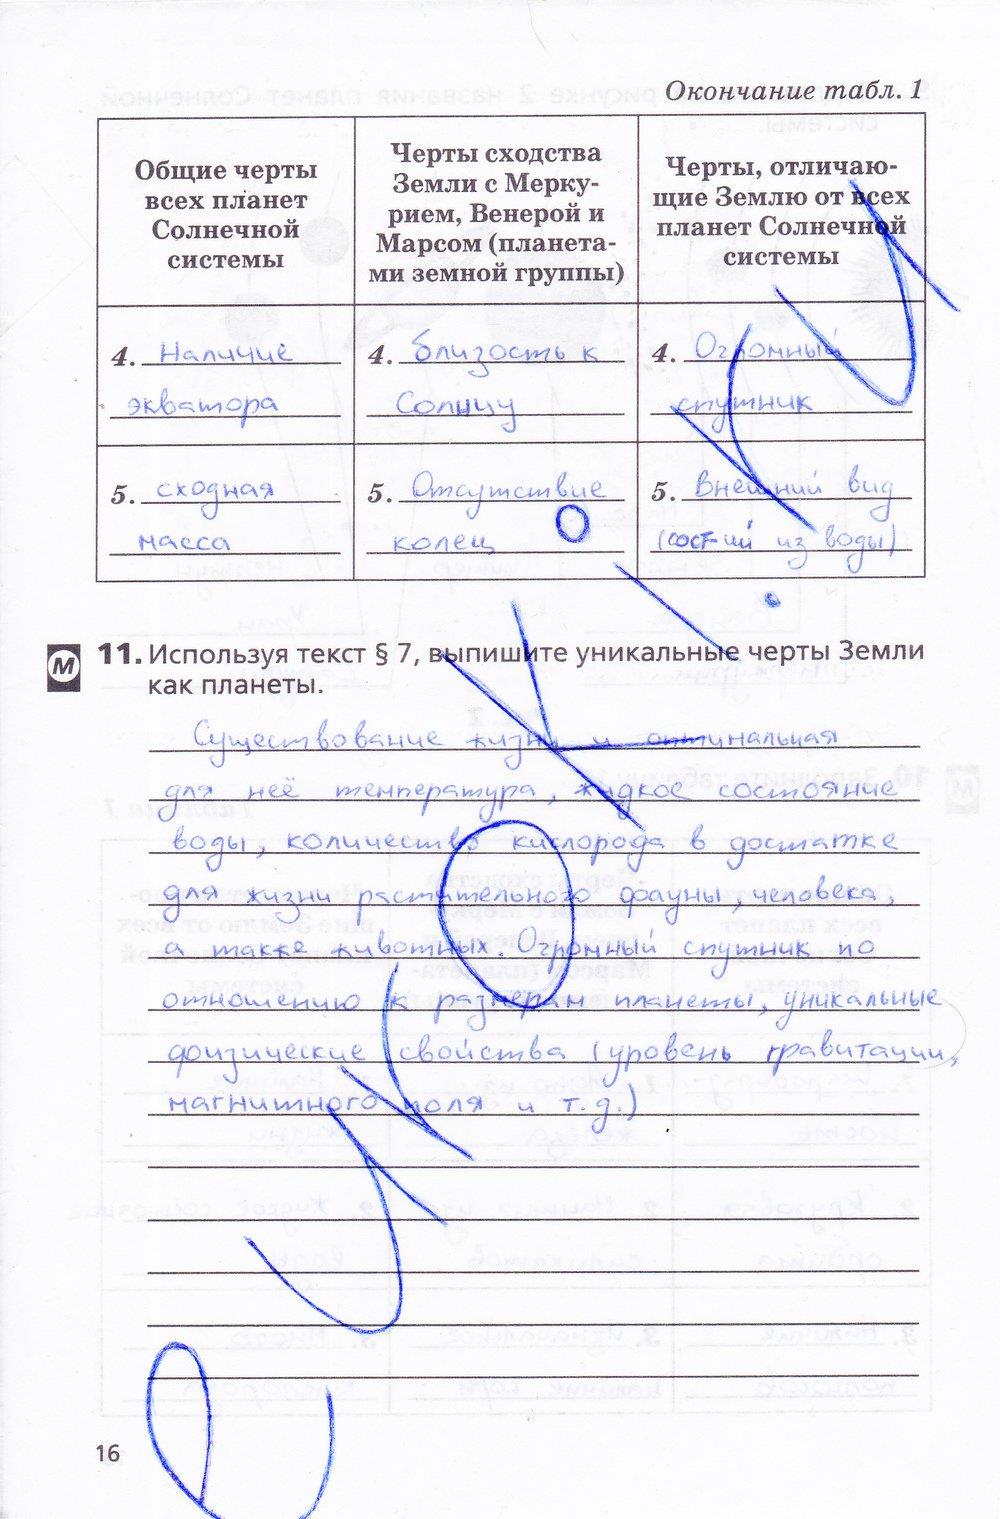 Окончание табл. 1
Общие черты
всех планет
Солнечной
системы
Черты сходства
Земли с Мерку-
рием, Венерой и
Марсом (планета-
ми земной группы)
Черты, отличаю-
щие Землю от всех
планет Солнечной
системы
4. Наличие
экватора
4. близость к
Солнцу
4. Огромный
спутник
5. сходная
масса
5. Отсутствие
колец
5. Внешний вид
(сост-ий из воды)
М
11. Используя текст § 7, выпишите уникальные черты Земли
как планеты.
Существование жизни и оптимальная
для неё температура, жидкое состояние
воды, количество кислорода в достатке
для жизни растительного фауны, человека,
а также животных. Огромный спутник по
отношению к размерам планеты, уникальные
физические свойства (уровень гравитации,
магнитного поля и т.д.)
16
еуроки.ру